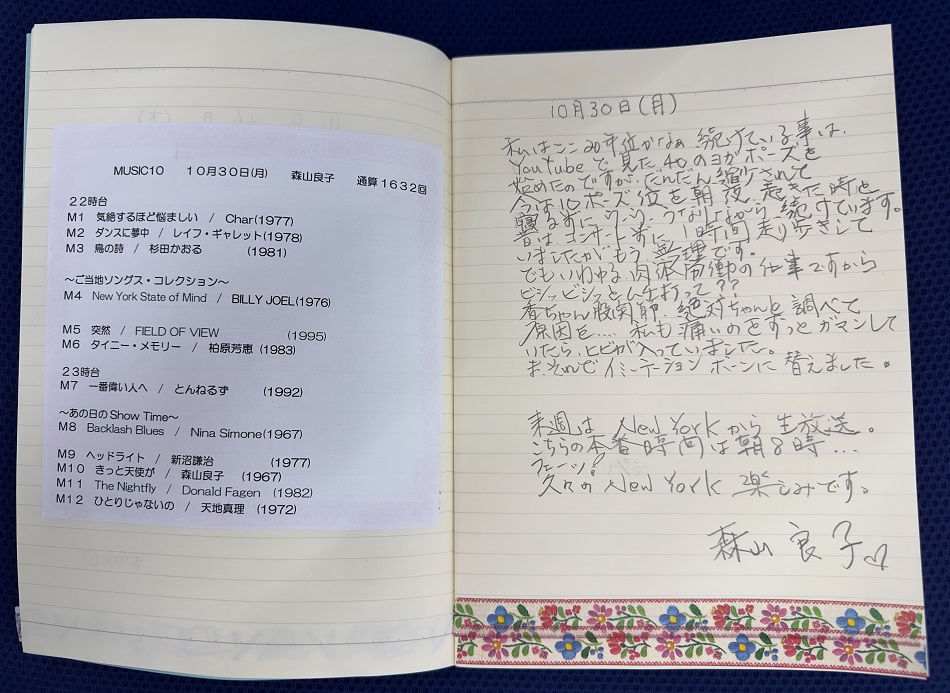 MUSIC10 10月30日(月) 森山良子 通算1632回
22時台
M1 気絶するほど悩ましい / Char(1977)
M2 ダンスに夢中 / レイフ・ギャレット(1978)
M3 鳥の詩 / 杉田かおる (1981)
～ご当地ソングス・コレクション～
M4 New York State of Mind / BILLY JOEL(1976)
M5 突然 / FIELD OF VIEW (1995)
M6 タイニー・メモリー / 柏原芳恵 (1983)
23時台
M7 一番偉い人へ / とんねるず (1992)
～あの日のShow Time～
M8 Backlash Blues / Nina Simone(1967)
M9 ヘッドライト / 新沼謙治 (1977)
M10 きっと天使が / 森山良子 (1967)
M11 The Nightfly / Donald Fagen (1982)
M12 ひとりじゃないの / 天地真理 (1972)
10月30日(月)
私はここ20年位かなぁ 続けている事は、
YouTubeで見た40のヨガポーズを
始めたのですが、だんだん縮少されて
今は10ポーズ位を朝、夜、起きた時と
寝る前に ながら 続けています。
昔はコンサート前に、1時間走り歩きして
いましたがもう無理です。
でもいわゆる肉体労働の仕事ですから
ビシッビシッとムチ打って??
香ちゃん股関節、絶対ちゃんと調べて
原因を.... 私も痛いのをずっとガマンして
いたら、ヒビが入っていました。
それでイミテーションボーンに替えました。
来週は New Yorkから生放送。
こちらの本番時間は朝8時...
久々の New York 楽しみです。
森山良子♡